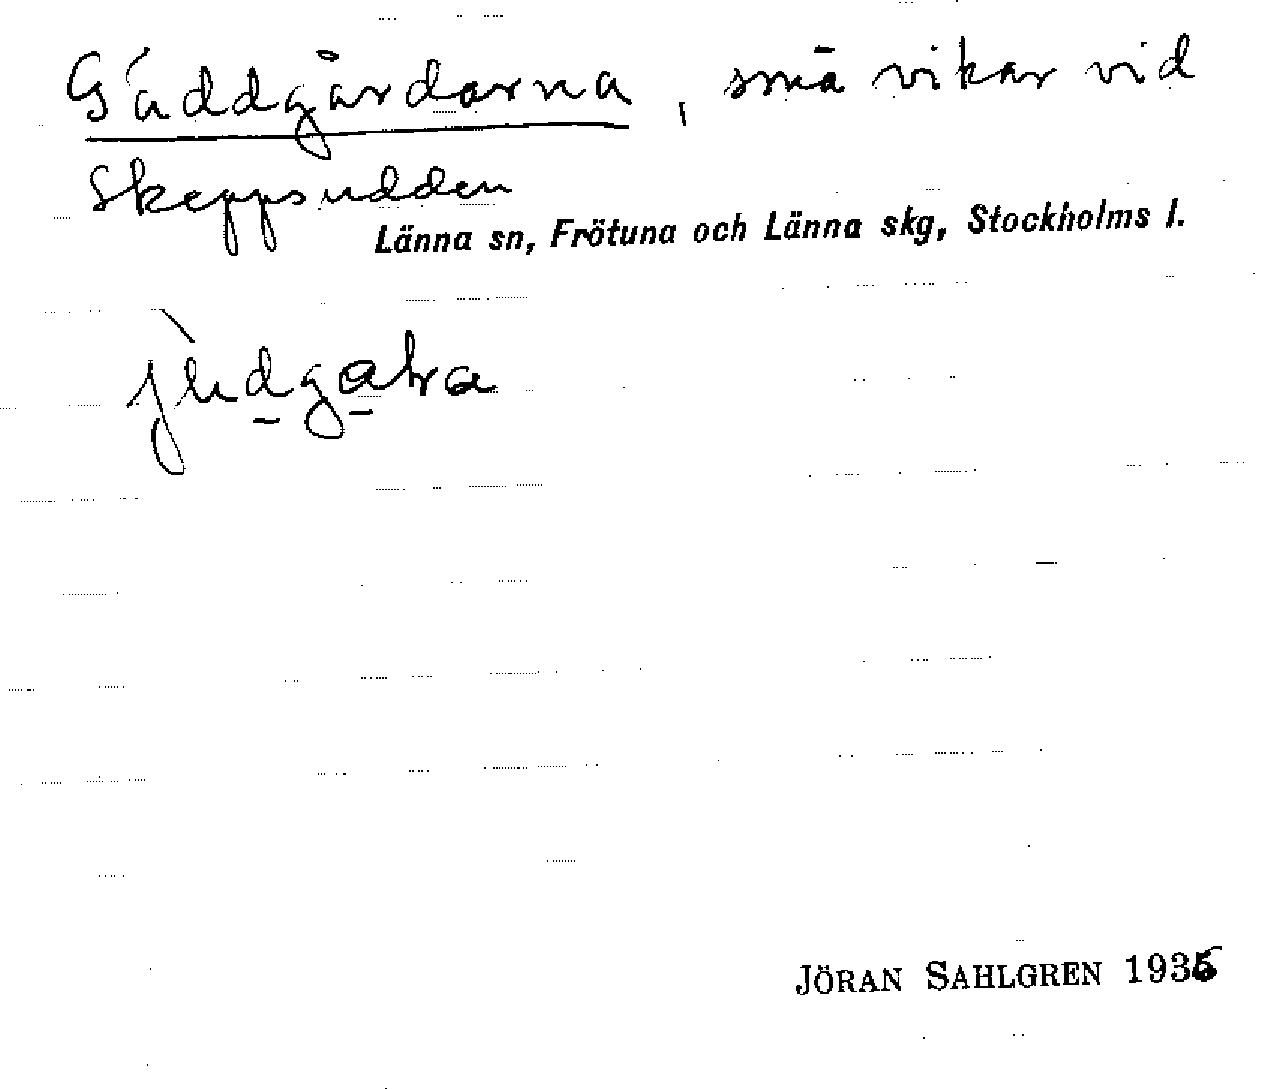 Gäddgårdarna, små vikar vid
Skeppsudden
Länna sn, Frötuna och Länna skg, Stockholms l.
JÖRAN SAHLGREN 1936